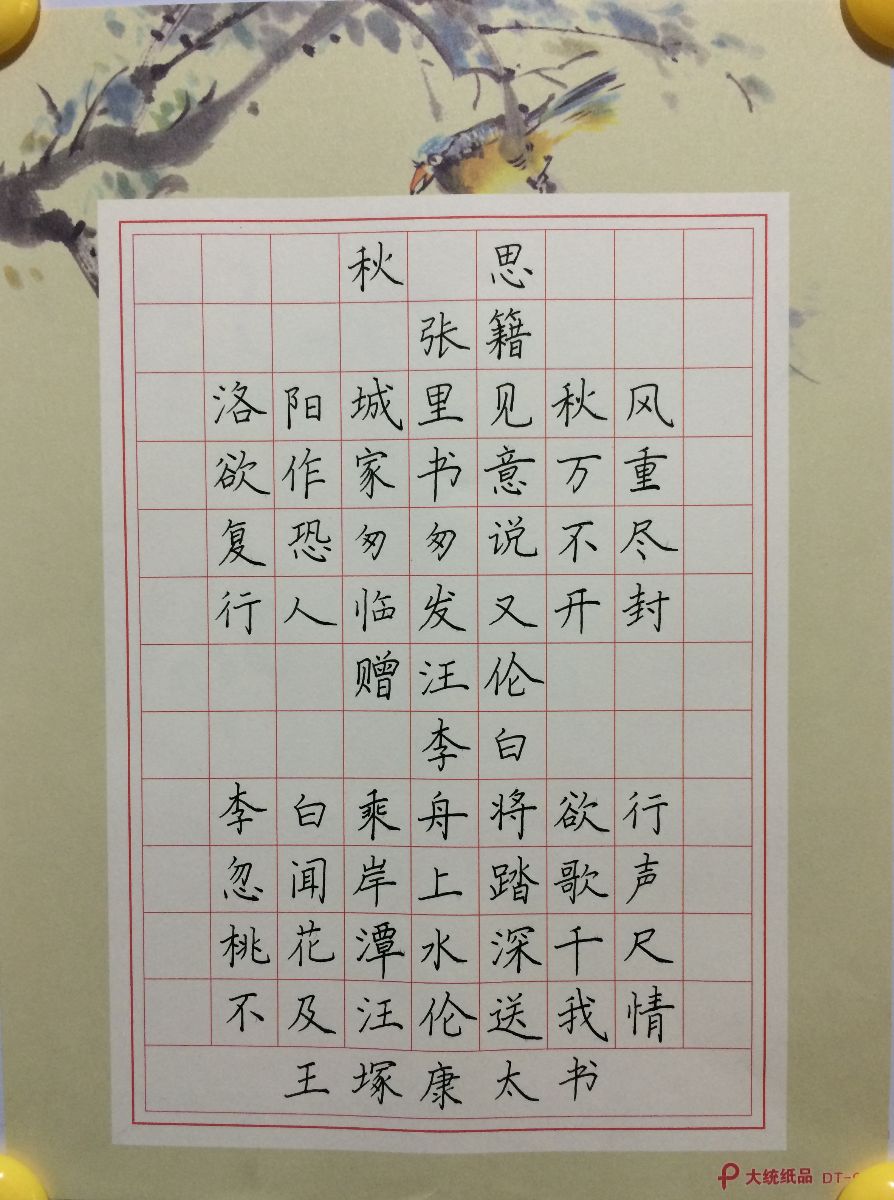 秋思
张籍
洛阳城里见秋风
欲作家书意万重
复恐匆匆说不尽
行人临发又开封
赠汪伦
李白
李白乘舟将欲行
忽闻岸上踏歌声
桃花潭水深千尺
不及汪伦送我情
王塚康太书
大统纸品 DT-